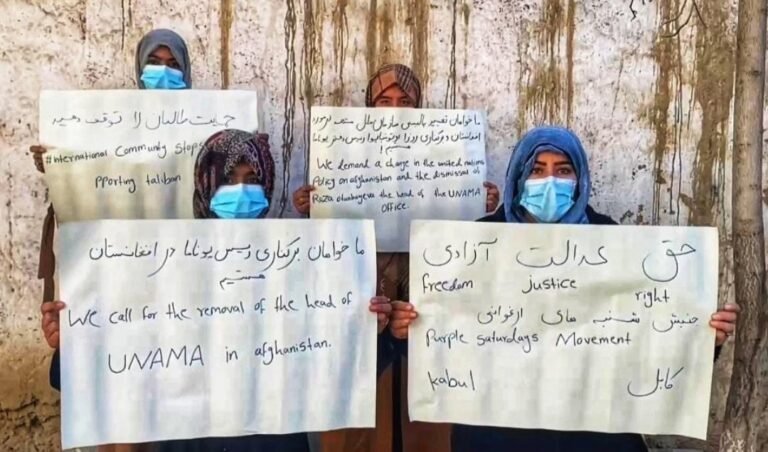 حمایت طالبان را توقف دهید
#International Community Stops
pporting taliban
ما خواهان تغییر پالیسی سازمان ملل متحد در مورد
افغانستان و برکناری روزا اوتونبایوا رییس دفتر یوناما
هستیم
We demand a change in the united nations
Policy on afghanistan and the dismissal of
Roza otunbayeva the head of the UNAMA
Office.
ما خواهان برکناری رییس یوناما در افغانستان
هستیم
We call for the removal of the head of
UNAMA in afghanistan.
حق عدالت آزادی
freedom justice right
جنبش شنبه های ارغوانی
Purple saturdays Movement
kabul کابل